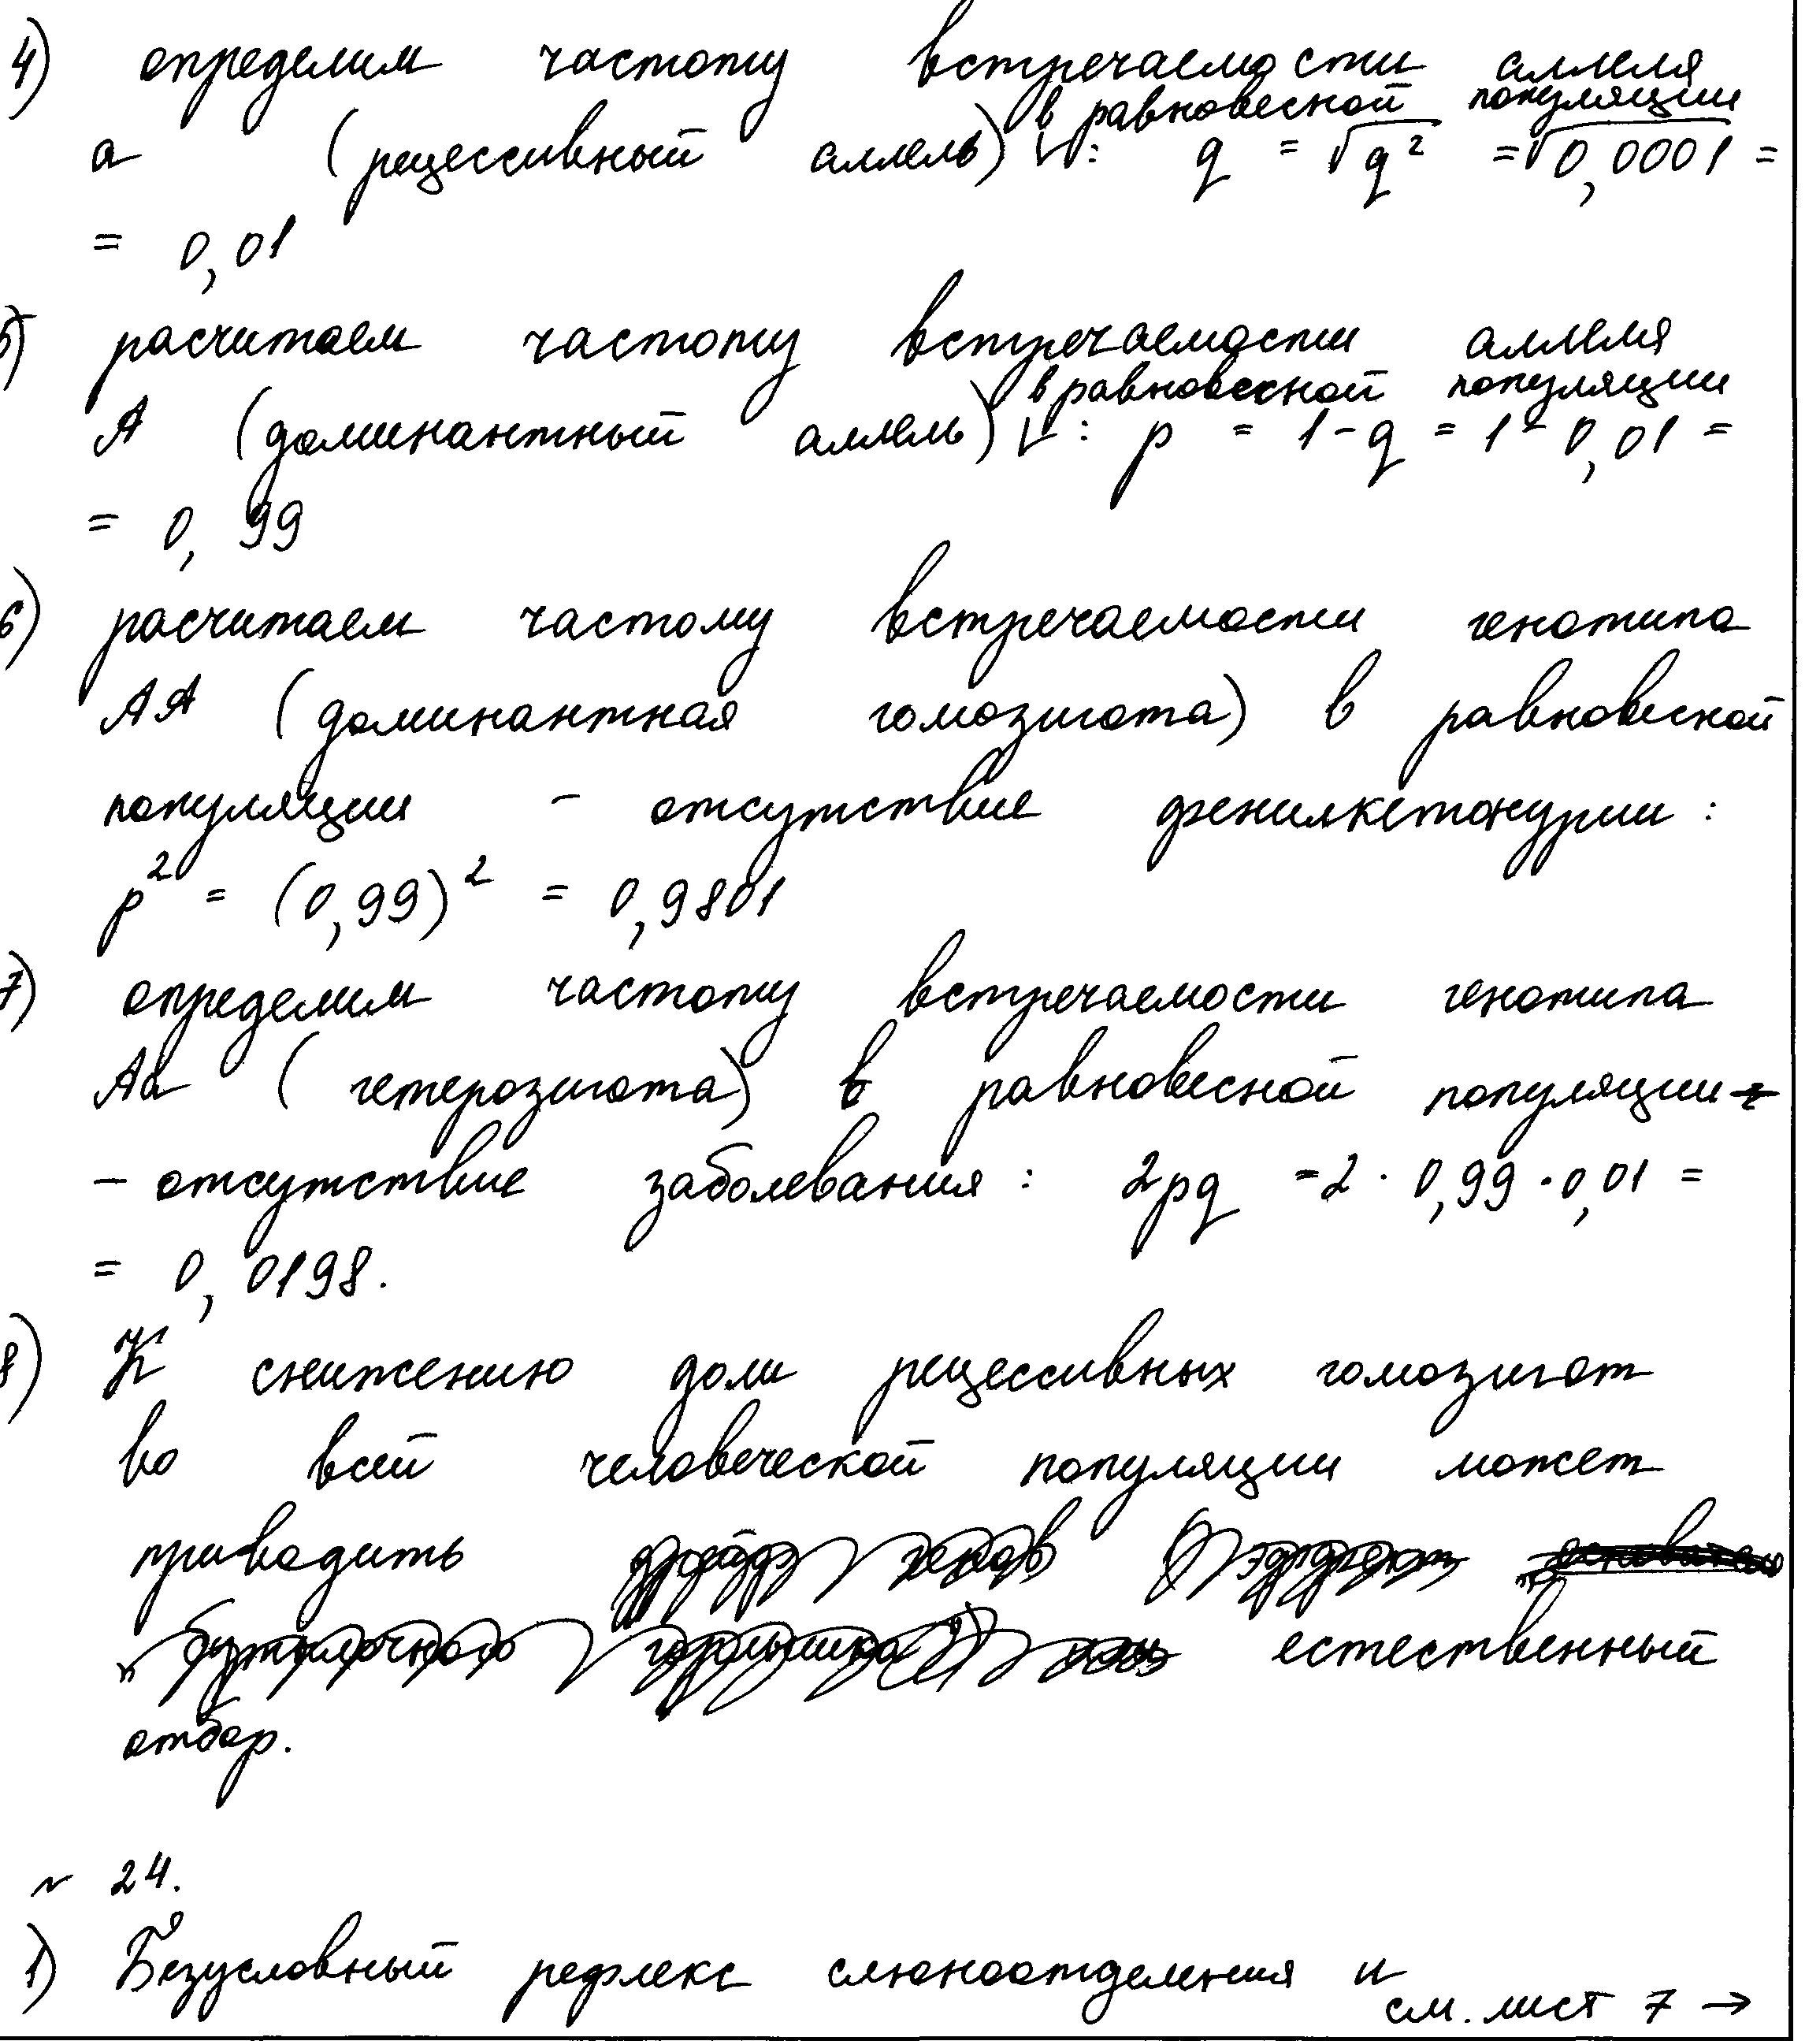 4) определим частоту встречаемости аллеля
в равновесной популяции
а (рецессивный аллель) V: q = √q² = √0,0001 =
= 0,01
5) расчитаем частоту встречаемости аллеля
в равновесной популяции
А (доминантный аллель) V: p = 1-q = 1-0,01 =
= 0,99
6) расчитаем частому встречаемости генотипа
АА (доминантная гомозигота) в равновесной
популяции - отсутствие фенилкетонурии:
p² = (0,99)² = 0,9801
7) определим частоту встречаемости генотипа
Аа (гетерозигота) в равновесной популяции
- отсутствие заболевания: 2pq = 2 · 0,99 · 0,01 =
= 0,0198.
8) К снижению доли рецессивных гомозигот
во всей человеческой популяции может
приводить дрейф генов (эффект
"бутылочного горлышка") или естественный
отбор.
N 24.
1) Безусловный рефлекс слюноотделения и
см. лист 7 →